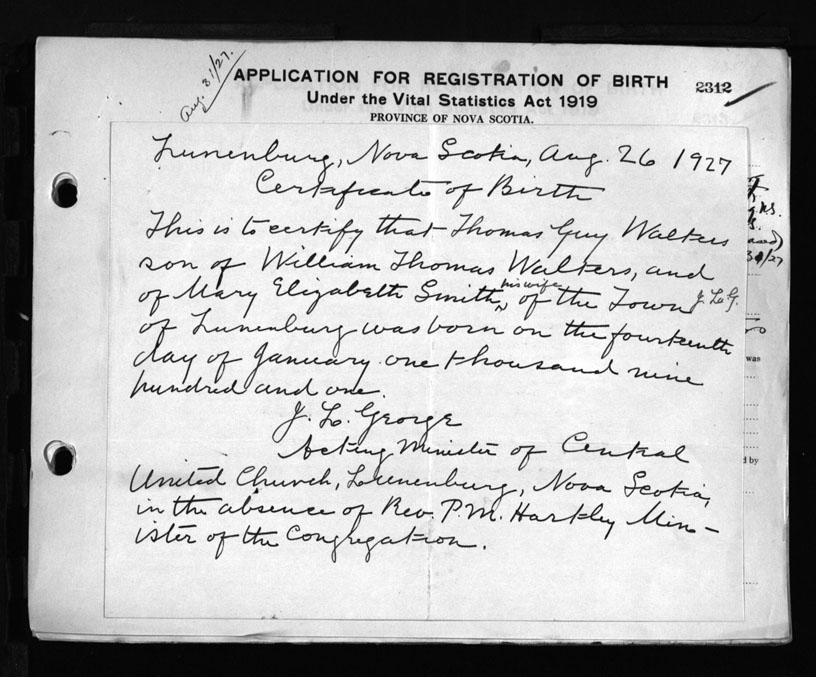 Aug. 31/27.
APPLICATION FOR REGISTRATION OF BIRTH
2312
Under the Vital Statistics Act 1919
PROVINCE OF NOVA SCOTIA.
Lunenburg, Nova Scotia, Aug. 26 1927
Certificate of Birth
This is to certify that Thomas Guy Walters
son of William Thomas Walters, and
of Mary Elizabeth Smith, his wife, of the Town J. L. G.
of Lunenburg was born on the fourteenth
day of January one thousand nine
hundred and one.
J. L. George
Acting Minister of Central
United Church, Lunenburg, Nova Scotia,
in the absence of Rev. P. M. Hartley Min-
ister of the Congregation.
was
d by